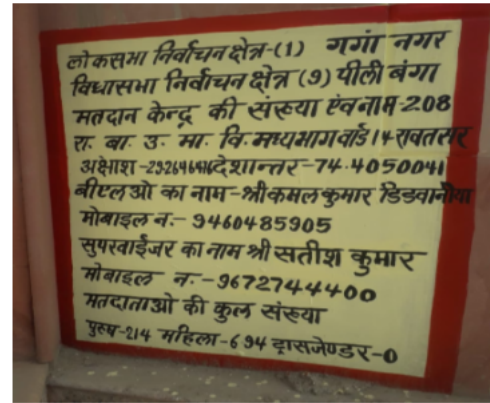 लोकसभा निर्वाचन क्षेत्र-(1) गगां नगर
विधासभा निर्वाचन क्षेत्र (9) पीली बंगा
मतदान केन्द्र की संख्या एंव नाम-208
रा. बा. उ. मा. वि. मध्यभाग वार्ड 14 रावतसर
अक्षाश-29.2646416 देशान्तर-74.4050041
बीएलओ का नाम-श्री कमल कुमार डिडवानीया
मोबाइल न.- 9460485905
सुपरवाईजर का नाम श्री सतीश कुमार
मोबाइल न.-9672744400
मतदाताओ की कुल संख्या
पुरुष-214 महिला-694 ट्रासजेण्डर-0